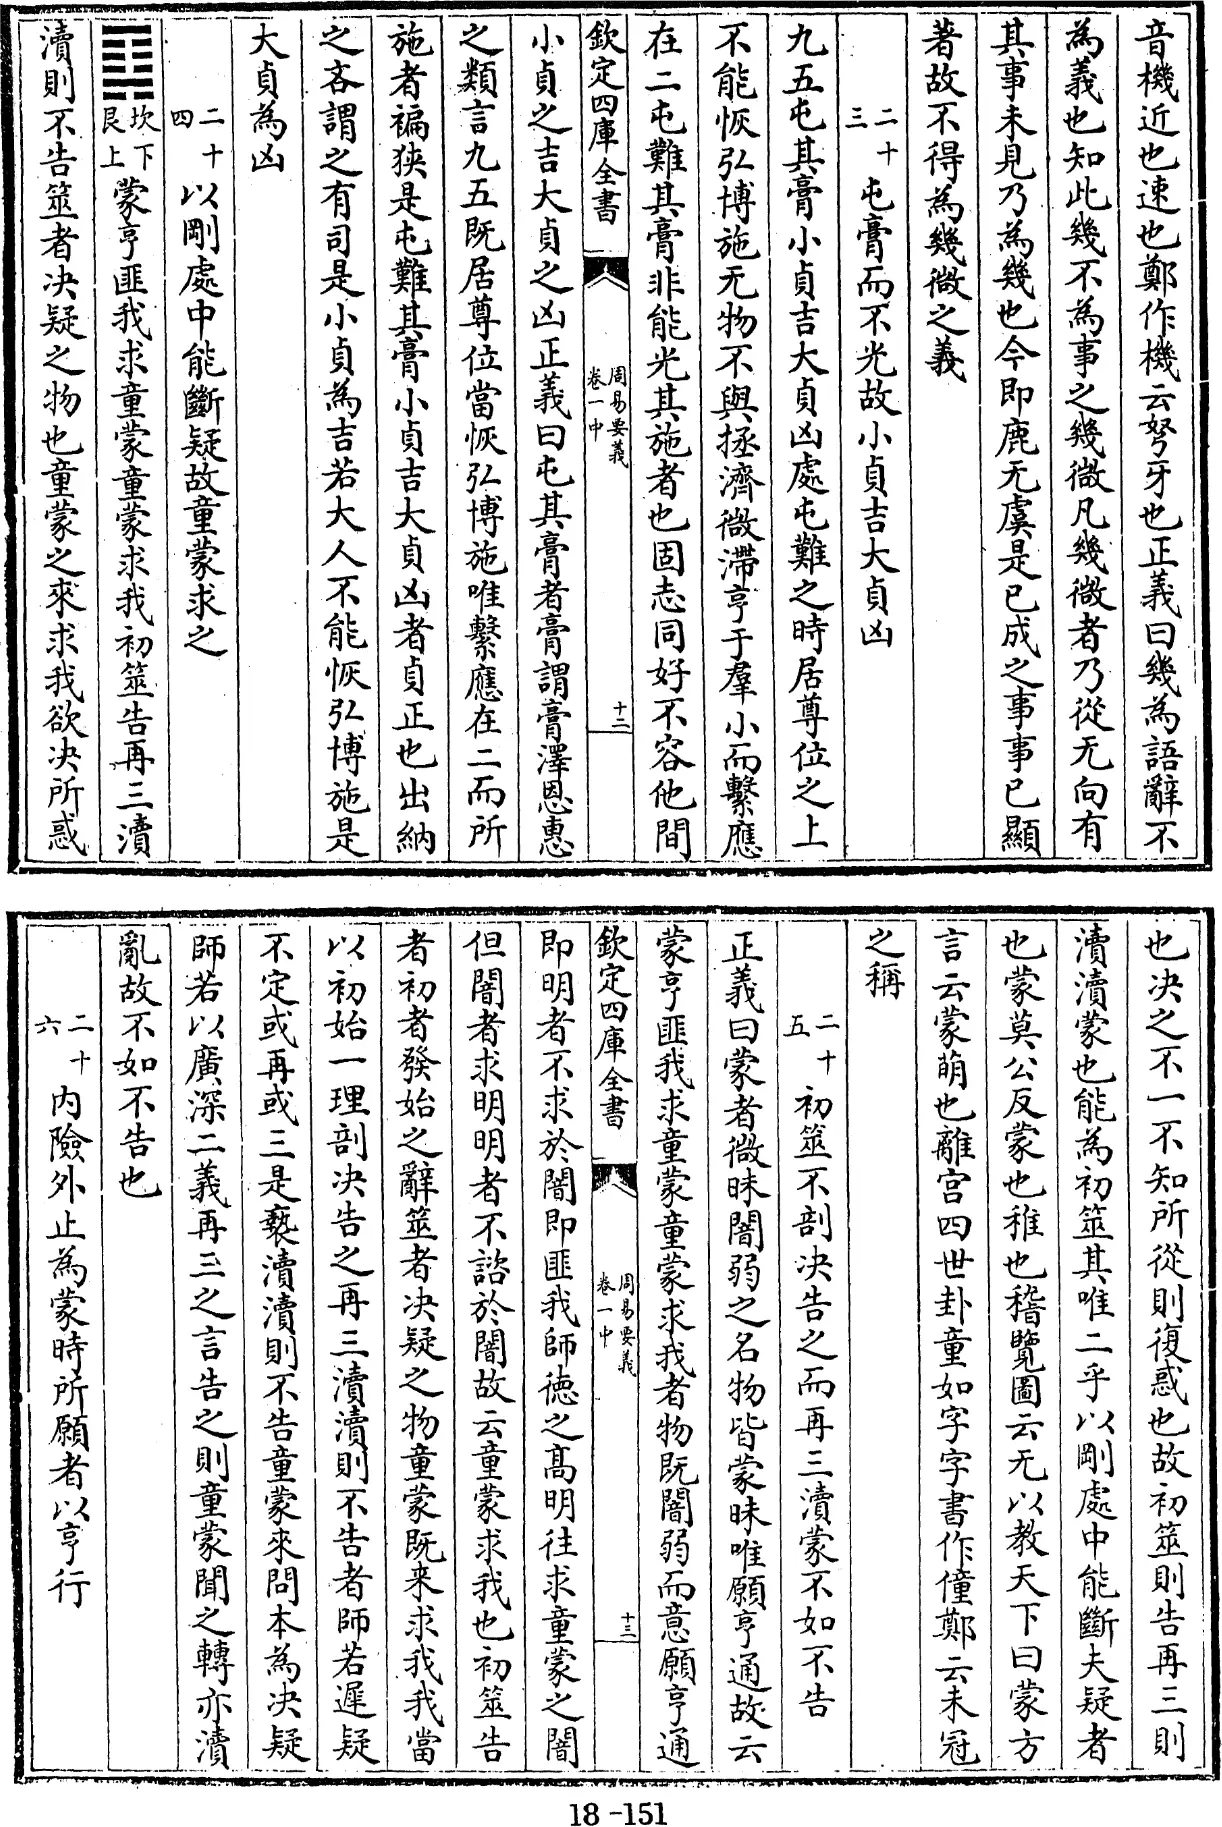 音機近也速也鄭作機云弩牙也正義曰幾為語辭不
為義也知此幾不為事之幾微凡幾微者乃從无向有
其事未見乃為幾也今即鹿无虞是已成之事事已顯
著故不得為幾微之義
二十三 屯膏而不光故小貞吉大貞凶
九五屯其膏小貞吉大貞凶處屯難之時居尊位之上
不能恢弘博施无物不與拯濟微滯亨于羣小而繫應
在二屯難其膏非能光其施者也固志同好不容他間
欽定四庫全書 周易要義卷一中 十二
小貞之吉大貞之凶正義曰屯其膏者膏謂膏澤恩惠
之類言九五既居尊位當恢弘博施唯繫應在二而所
施者褊狹是屯難其膏小貞吉大貞凶者貞正也出納
之吝謂之有司是小貞為吉若大人不能恢弘博施是
大貞為凶
二十四 以剛處中能斷疑故童蒙求之
䷃坎下艮上蒙亨匪我求童蒙童蒙求我初筮告再三瀆
瀆則不告筮者決疑之物也童蒙之來求我欲決所惑
也決之不一不知所從則復惑也故初筮則告再三則
瀆瀆蒙也能為初筮其唯二乎以剛處中能斷夫疑者
也蒙莫公反蒙也稚也稽覽圖云无以教天下曰蒙方
言云蒙萌也離宫四世卦童如字字書作僮鄭云未冠
之稱
二十五 初筮不剖決告之而再三瀆蒙不如不告
正義曰蒙者微昧闇弱之名物皆蒙昧唯願亨通故云
蒙亨匪我求童蒙童蒙求我者物既闇弱而意願亨通
欽定四庫全書 周易要義卷一中 十三
即明者不求於闇即匪我師德之高明往求童蒙之闇
但闇者求明明者不諮於闇故云童蒙求我也初筮告
者初者發始之辭筮者決疑之物童蒙既来求我我當
以初始一理剖決告之再三瀆瀆則不告者師若遲疑
不定或再或三是褻瀆瀆則不告童蒙來問本為決疑
師若以廣深二義再三之言告之則童蒙聞之轉亦瀆
亂故不如不告也
二十六 内險外止為蒙時所願者以亨行
18-151